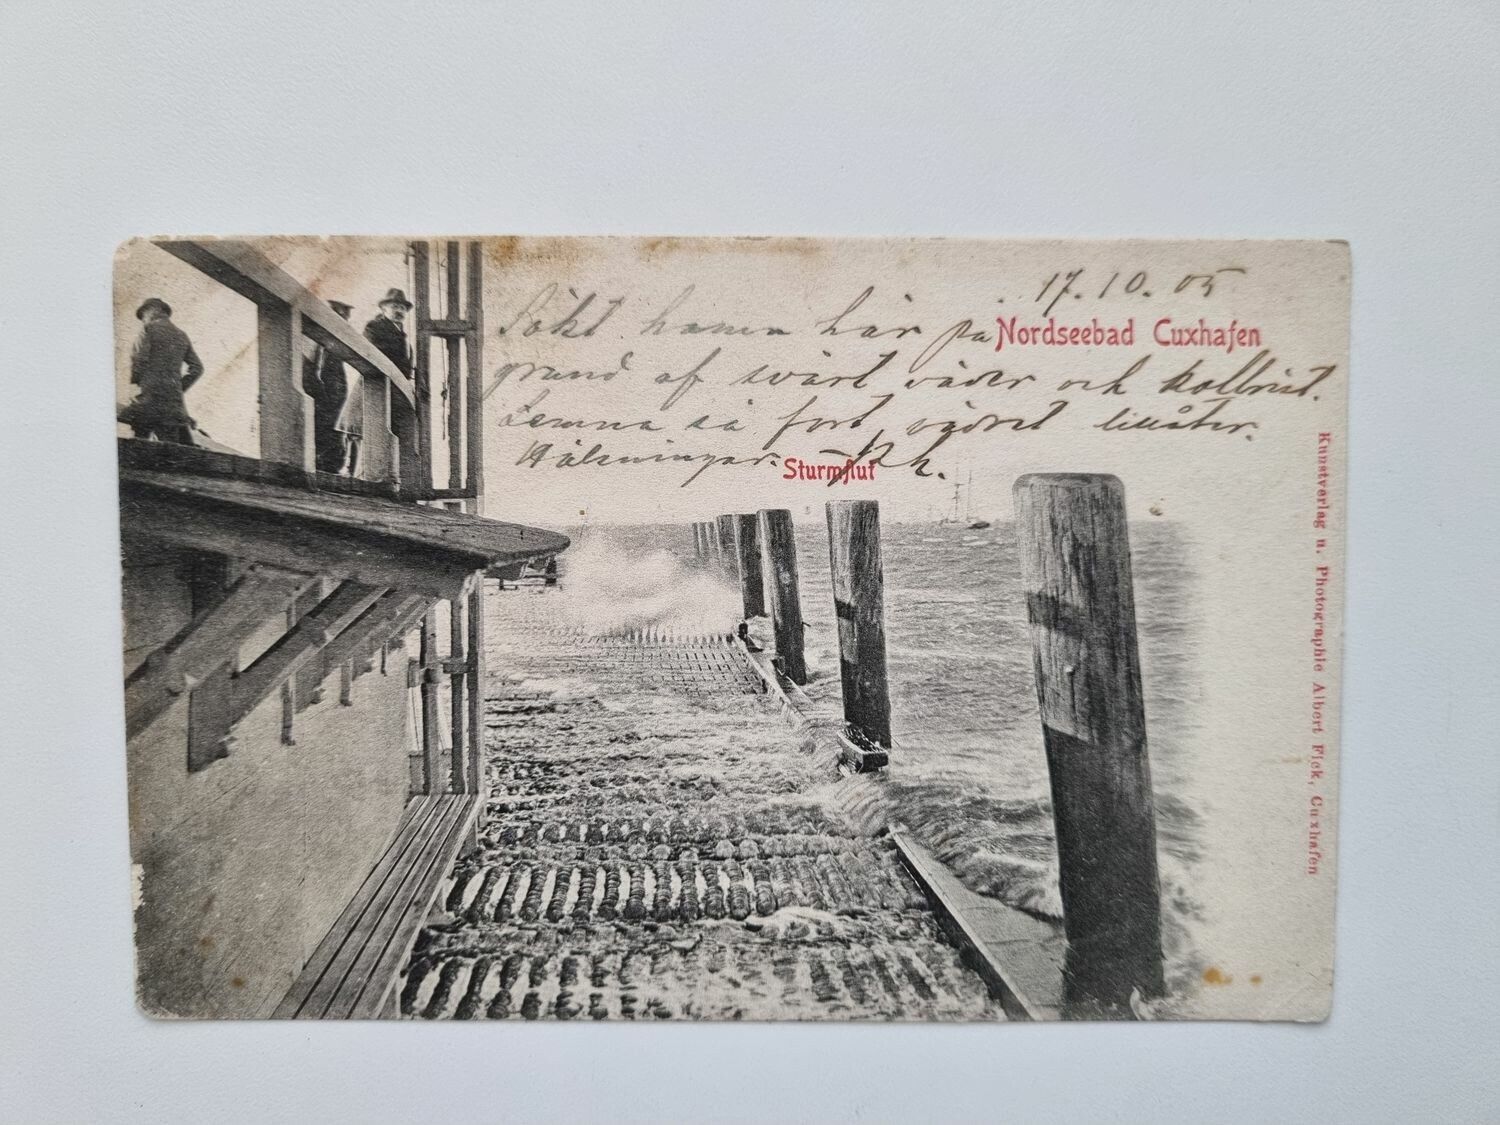 17.10.05
Sökt hamn här på
Nordseebad Cuxhafen
grund af svårt väder och kolbrist.
Lemna så fort vädret tillåter.
Hälsningar.
Sturmflut
Kunstverlag u. Photographie Albert Fick, Cuxhafen